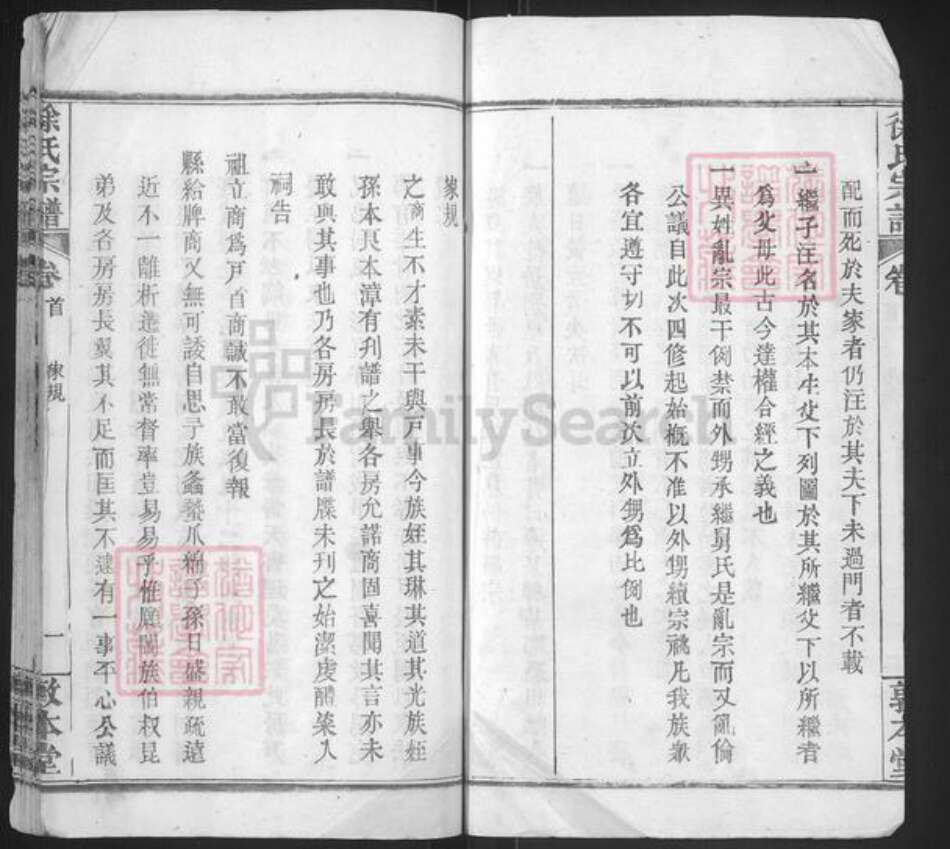 配而死於夫家者仍注於其夫下未過門者不載
一繼子注名於其本生父下列圖於其所繼父下以所繼者
為父母此古今達權合經之義也
一異姓亂宗最干例禁而外甥承繼舅氏是亂宗而又亂倫
公議自此次四修起始概不准以外甥繼宗祧凡我族衆
各宜遵守切不可以前次立外甥為比例也
敦本堂
家規
之商生不才素未干與戶事今族姪其琳其道其光族姪
孫本良本漳有刋譜之舉各房允諾商固喜聞其言亦未
敢與其事也乃各房房長於譜牒未刋之始潔虔醴楽入
祠告
祖立商為戶首商誠不敢當復報
縣給牌商又無可諉自思子族螽蟄瓜綿子孫日盛親疏遠
近不一離析遷徙無常督率豈易易乎惟願闔族伯叔昆
弟及各房房長翼其不足而匡其不逮有一事平心公議
徐氏宗譜
卷首
家規
一
敦本堂
FamilySearch